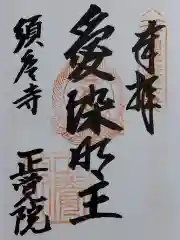 奉拝
愛染明王
須磨寺
正覚院